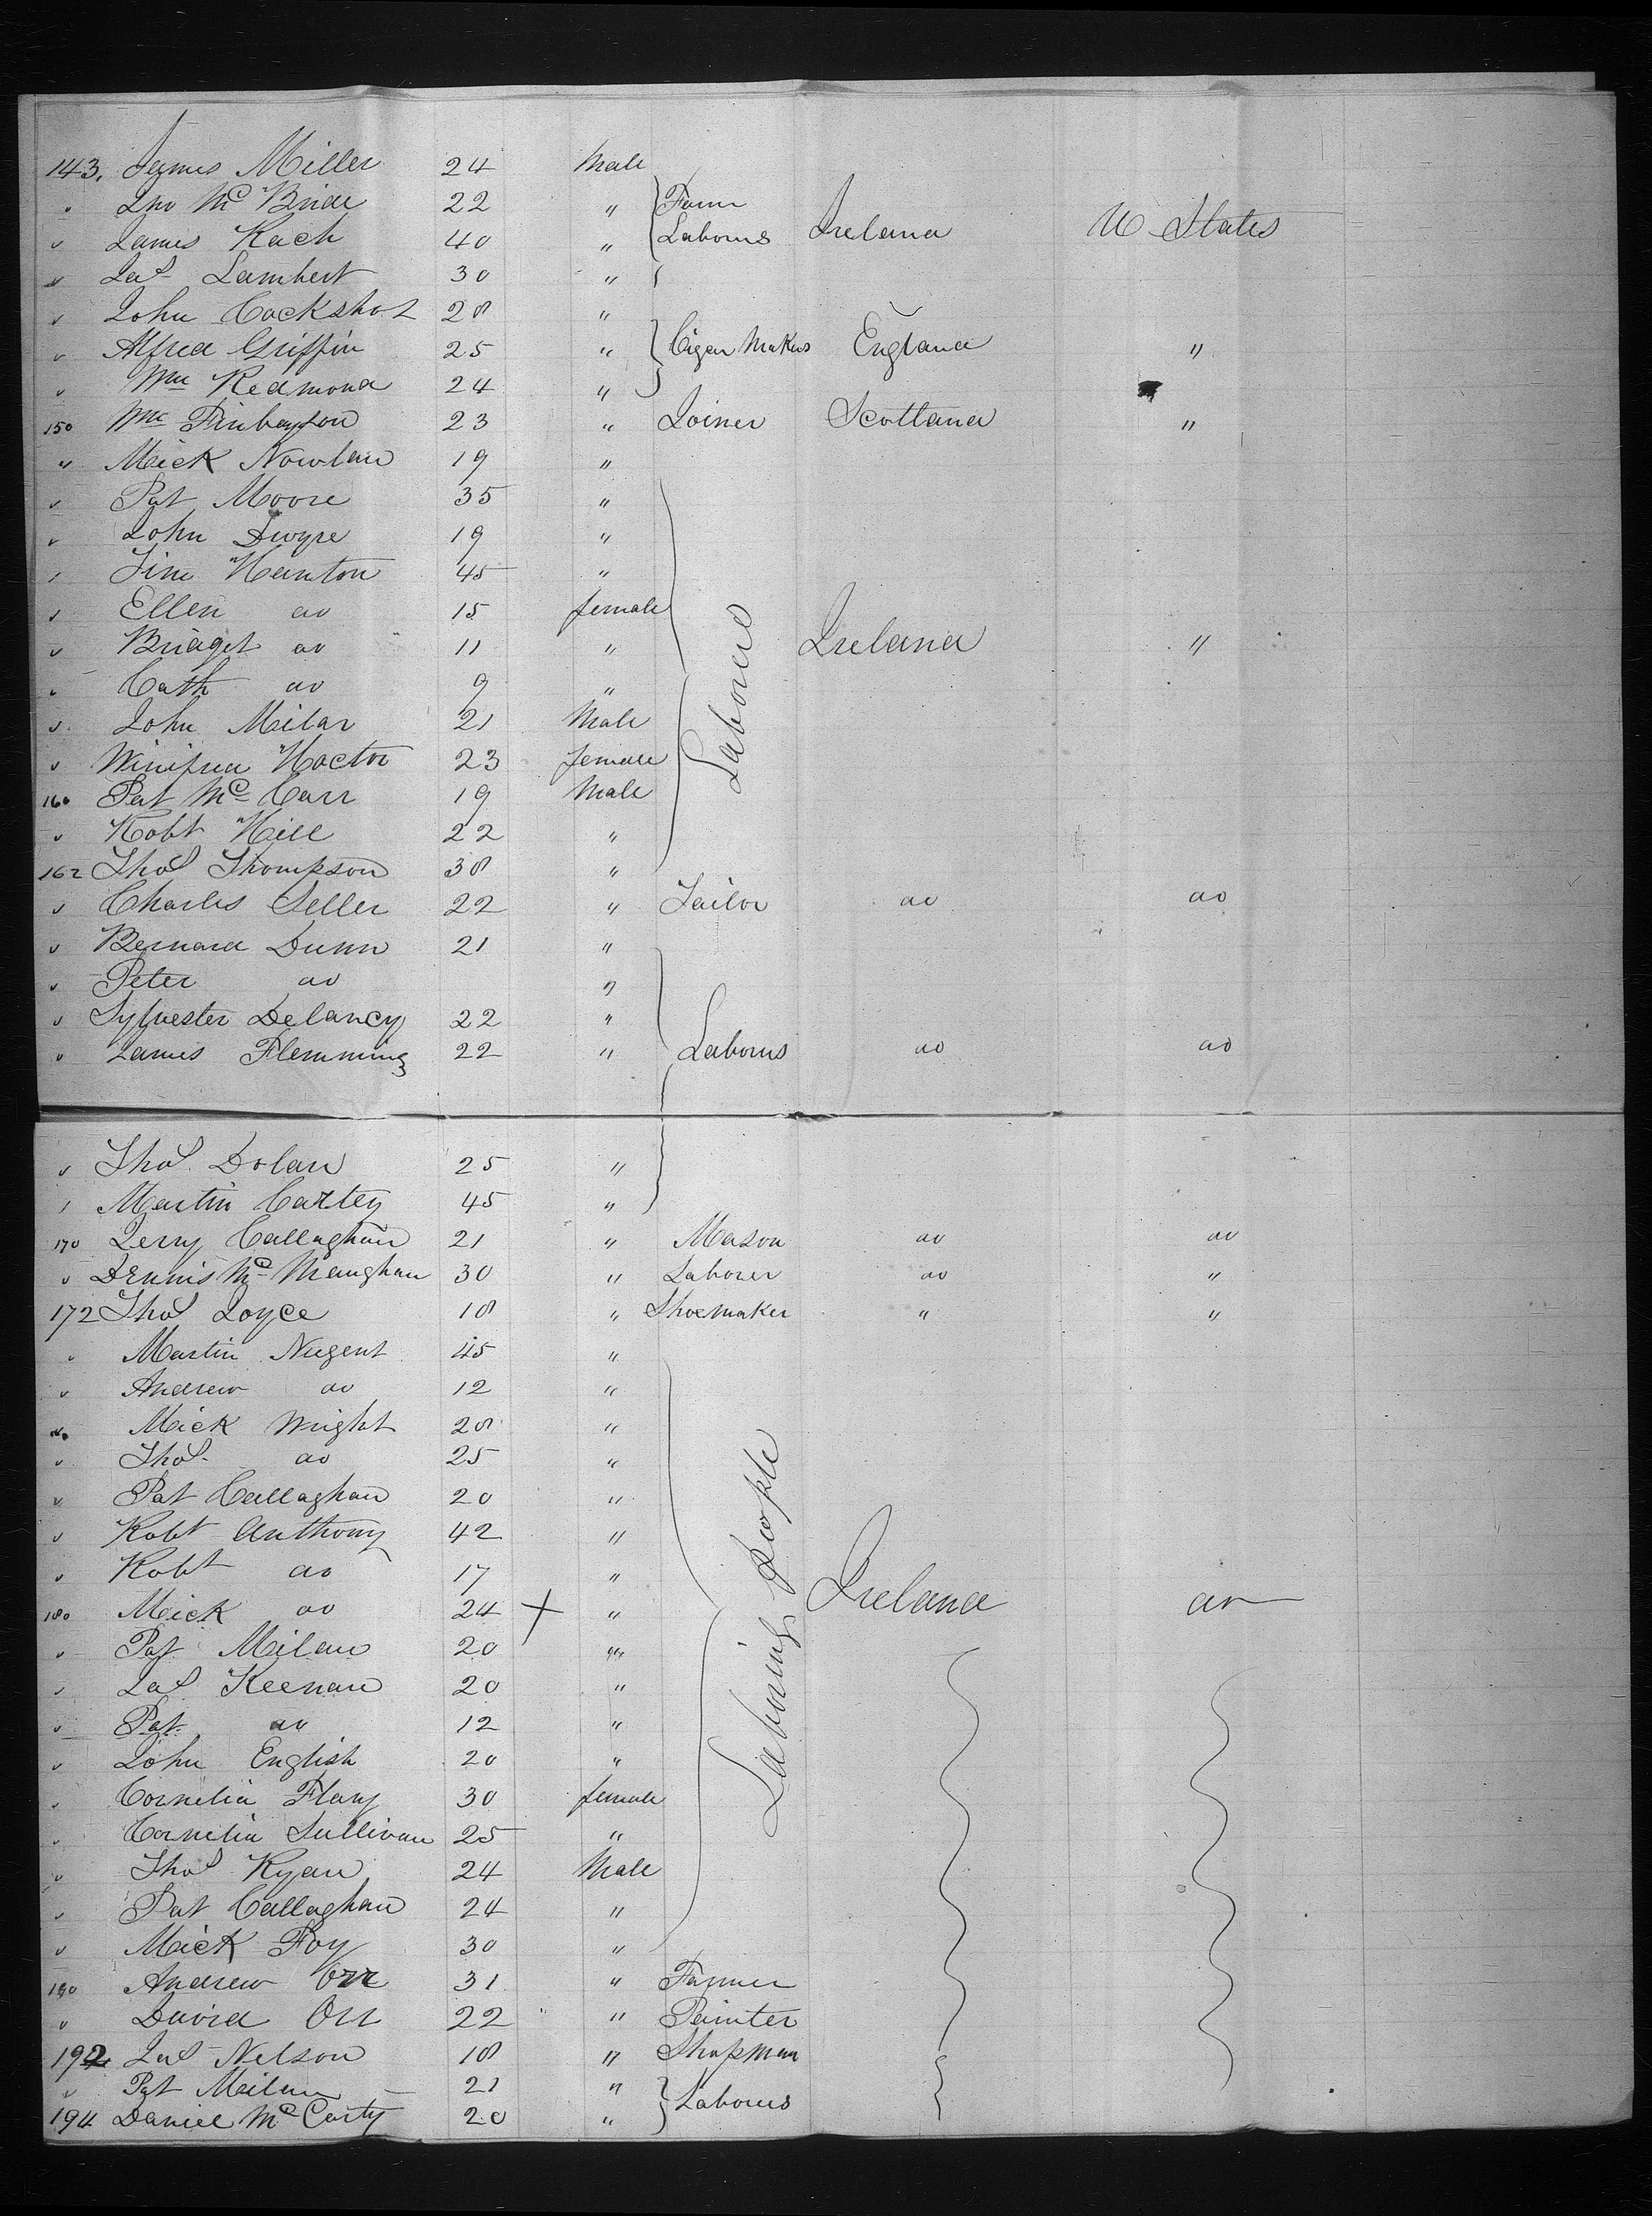 143. James Miller 24 Male
" Jno McBride 22 " Farm
" James Kach 40 " Laborers Ireland U States
" Jas Lambert 30 "
" John Cockshot 28 "
" Alfred Griffin 25 " Cigar Makers England "
" Wm Redmond 24 "
150 Wm Finlayson 23 " Joiner Scotland "
" Mick Nowlan 19 "
" Pat Moore 35 "
" John Dwyre 19 "
" Jim Hanton 45 "
" Ellen do 15 female
" Bridget do 11 " Laborers Ireland "
" Cath do 9 "
" John Milar 21 Male
" Winifred Hoctor 23 female
160 Pat McCarr 19 Male
" Robt Hill 22 "
162 Thos Thompson 38 "
" Charles Seller 22 " Tailor do do
" Bernard Dunn 21 "
" Peter do "
" Sylvester Delancy 22 "
" James Flemming 22 " Laborers do do
" Thos Dolan 25 "
" Martin Cartey 45 "
170 Jerry Callaghan 21 " Mason do do
" Dennis McManghan 30 " Laborer do "
172 Thos Joyce 18 " Shoemaker " "
" Martin Nugent 45 "
" Andrew do 12 "
" Mick Wright 28 "
" Thos do 25 "
" Pat Callaghan 20 "
" Robt Anthony 42 "
" Robt do 17 "
180 Mick do 24 + " Laboring people Ireland do
" Pat Milan 20 "
" Jas Keenan 20 "
" Pat do 12 "
" John English 20 "
" Cornelia Flany 30 female
" Cornelia Sullivan 25 "
" Thos Ryan 24 Male
" Pat Callaghan 24 "
" Mick Foy 30 "
190 Andrew Orr 31 " Farmer
" David Orr 22 " Painter
192 Jas Nelson 18 " Shopman
" Pat Milan 21 " Laborers
194 Daniel McCarty 20 "